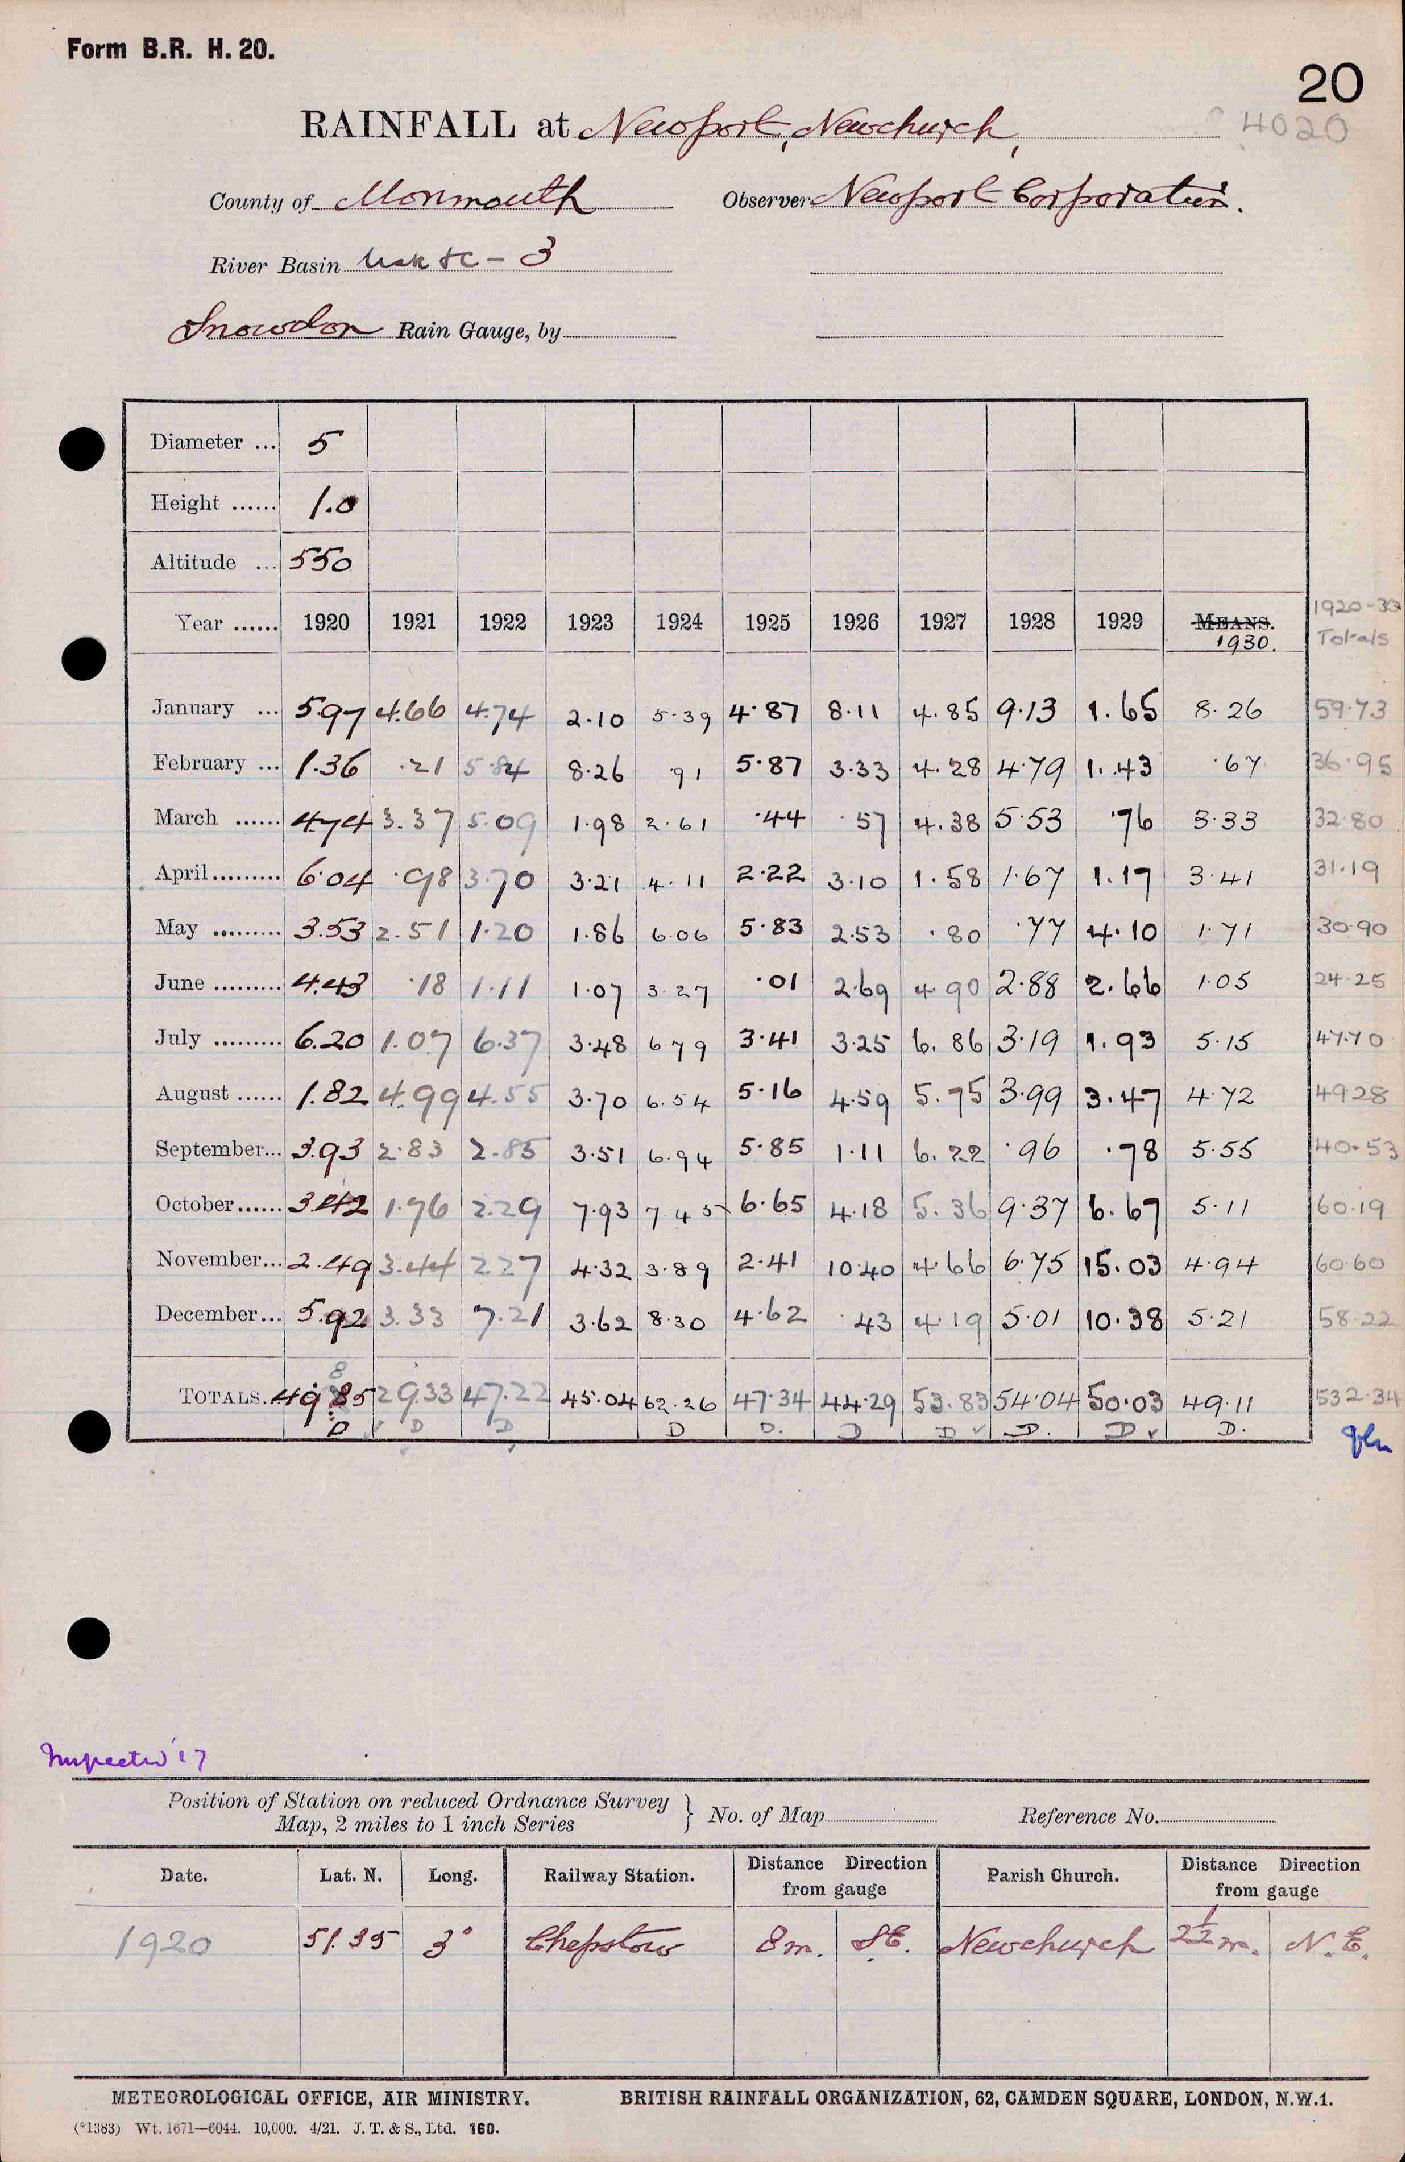 Form B.R. H. 20.
20
RAINFALL at Newport, Newchurch,
4020
County of Monmouth Observer Newport Corporation.
River Basin Usk &c - 3
Snowdon Rain Gauge, by
Diameter ... 5
Height ...... 1.0
Altitude ... 550
Year ...... 1920 1921 1922 1923 1924 1925 1926 1927 1928 1929 MEANS. 1930. 1920-30 Totals
January ... 5.97 4.66 4.74 2.10 5.39 4.87 8.11 4.85 9.13 1.65 8.26 59.73
February ... 1.36 .21 5.84 8.26 .91 5.87 3.33 4.28 4.79 1.43 .67 36.95
March ...... 4.74 3.37 5.09 1.98 2.61 .44 .57 4.38 5.53 .76 3.33 32.80
April ......... 6.04 .98 3.70 3.21 4.11 2.22 3.10 1.58 1.67 1.17 3.41 31.19
May ......... 3.53 2.51 1.20 1.86 6.06 5.83 2.53 .80 .77 4.10 1.71 30.90
June ......... 4.43 .18 1.11 1.07 3.27 .01 2.69 4.90 2.88 2.66 1.05 24.25
July ......... 6.20 1.07 6.37 3.48 6.79 3.41 3.25 6.86 3.19 1.93 5.15 47.70
August ...... 1.82 4.99 4.55 3.70 6.54 5.16 4.59 5.75 3.99 3.47 4.72 49.28
September... 3.93 2.83 2.85 3.51 6.94 5.85 1.11 6.22 .96 .78 5.55 40.53
October...... 3.42 1.76 2.29 7.93 7.45 6.65 4.18 5.36 9.37 6.67 5.11 60.19
November... 2.49 3.44 2.27 4.32 3.89 2.41 10.40 4.66 6.75 15.03 4.94 60.60
December... 5.92 3.33 7.21 3.62 8.30 4.62 .43 4.19 5.01 10.38 5.21 58.22
TOTALS. 49.85 29.33 47.22 45.04 62.26 47.34 44.29 53.83 54.04 50.03 49.11 532.34
D D D D D. D D D. D D.
Inspected '17
Position of Station on reduced Ordnance Survey Map, 2 miles to 1 inch Series } No. of Map Reference No.
Date. Lat. N. Long. Railway Station. Distance Direction from gauge Parish Church. Distance Direction from gauge
1920 51.35 3° Chepstow 8 m. SE. Newchurch 2½ m. N.E.
METEOROLOGICAL OFFICE, AIR MINISTRY. BRITISH RAINFALL ORGANIZATION, 62, CAMDEN SQUARE, LONDON, N.W.1.
(*1383) Wt. 1671—6044. 10,000. 4/21. J. T. & S., Ltd. 160.